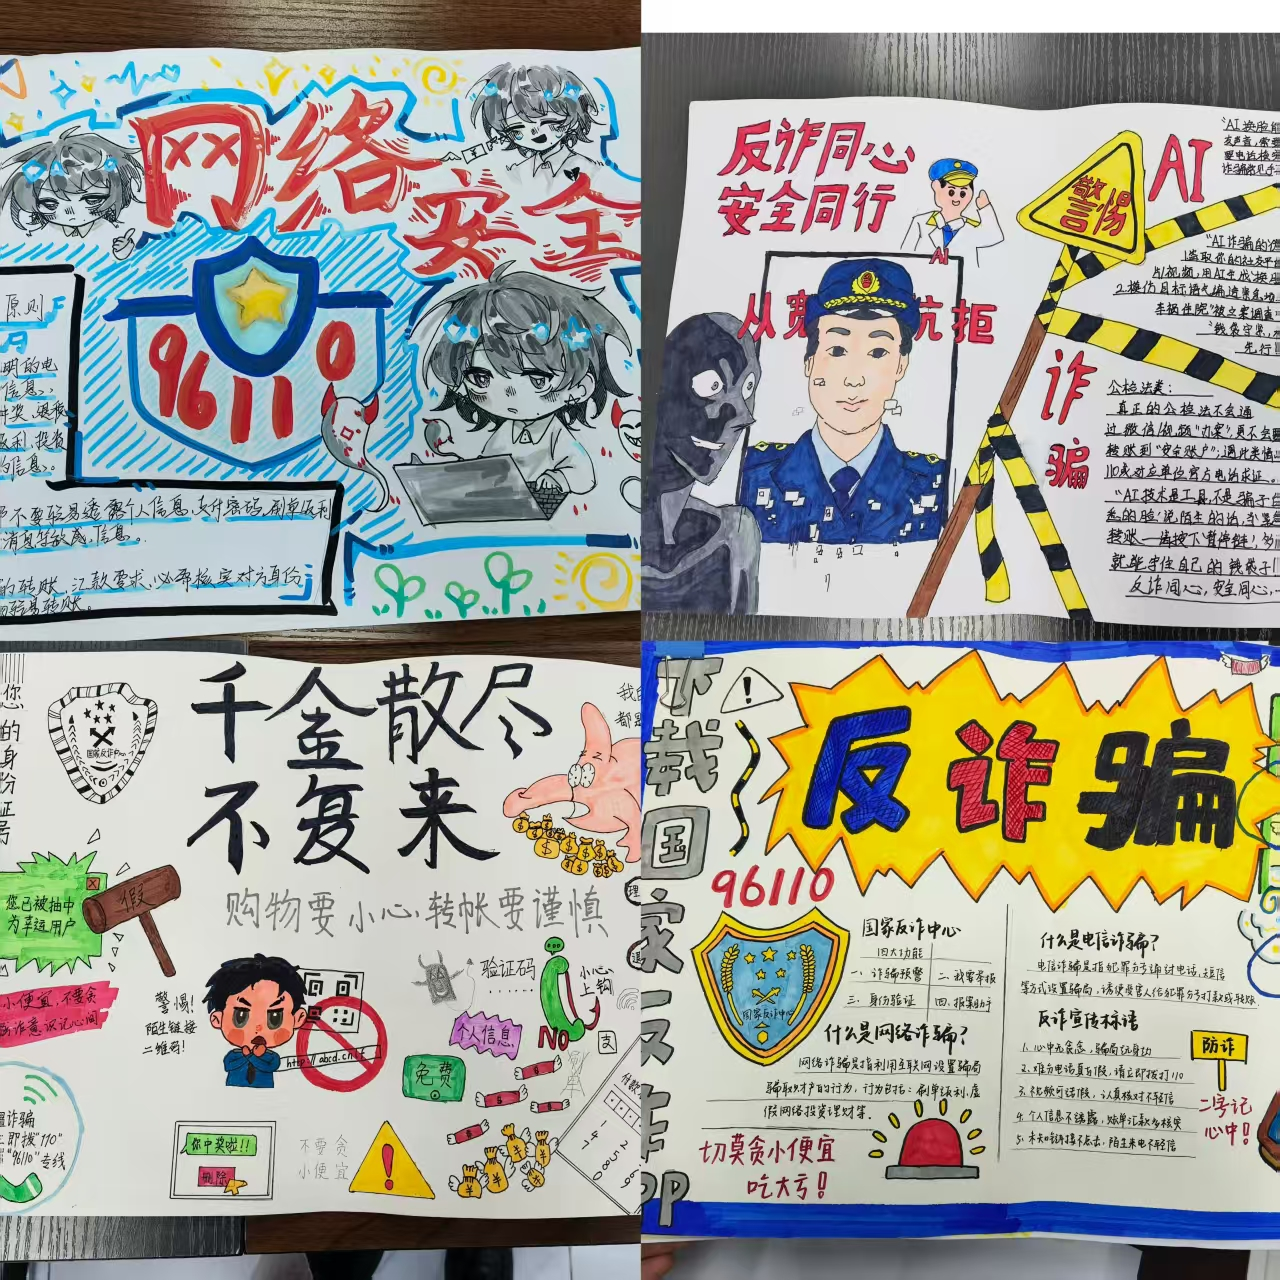 网络安全
96110
原则
明的电
信息、
中奖、退税
返利、投资
的信息。
不要轻易透露个人信息、支付密码、刷单返利
消息等敏感信息。
的转账、汇款要求,必要核实对方身份
轻易转账。
反诈同心
安全同行
AI
从宽 抗拒
警惕
AI
诈骗
公检法类:
真正的公检法不会通
过微信/视频“办案”,更不会
转账到“安全账户”;遇此类情
110或对应单位官方电话求证。
“AI技术是工具,不是骗子
悉的脸,说陌生的话,
转账——请按下暂停键!
就能守住自己的钱袋子!
反诈同心,安全同心,
您的身份证号
千金散尽
不复来
国家反诈中心
购物要小心,转帐要谨慎
您已被抽中
为幸运用户
假
小便宜,不要贪
诈意识记心间
警惕!
陌生链接
二维码!
http://abcd.cn/E
验证码
小心
上钩
个人信息
NO
支
免费
你中奖啦!!
删除
不要贪
小便宜
诈骗
立即拨"110"
"96110"专线
我的
都是
付款
下载国家反诈APP
反诈骗
96110
国家反诈中心
国家反诈中心
四大功能
一、诈骗预警
二、我要举报
三、身份验证
四、报案助手
什么是网络诈骗?
网络诈骗是指利用互联网设置骗局
骗取财产的行为,行为包括:刷单返利、虚
假网络投资理财等。
切莫贪小便宜
吃大亏!
什么是电信诈骗?
电信诈骗是指犯罪分子通过电话、短信
等方式设置骗局,诱使受害人给犯罪分子打款或转账
反诈宣传标语
1. 心中无贪念,骗局玩身功
2. 难分电话真与假,请立即拨打110
3. 视频可话假,认真核对不轻信
4. 个人信息不泄露,
5. 未知链接不点击,陌生来电不轻信
防诈
二字记
心中!